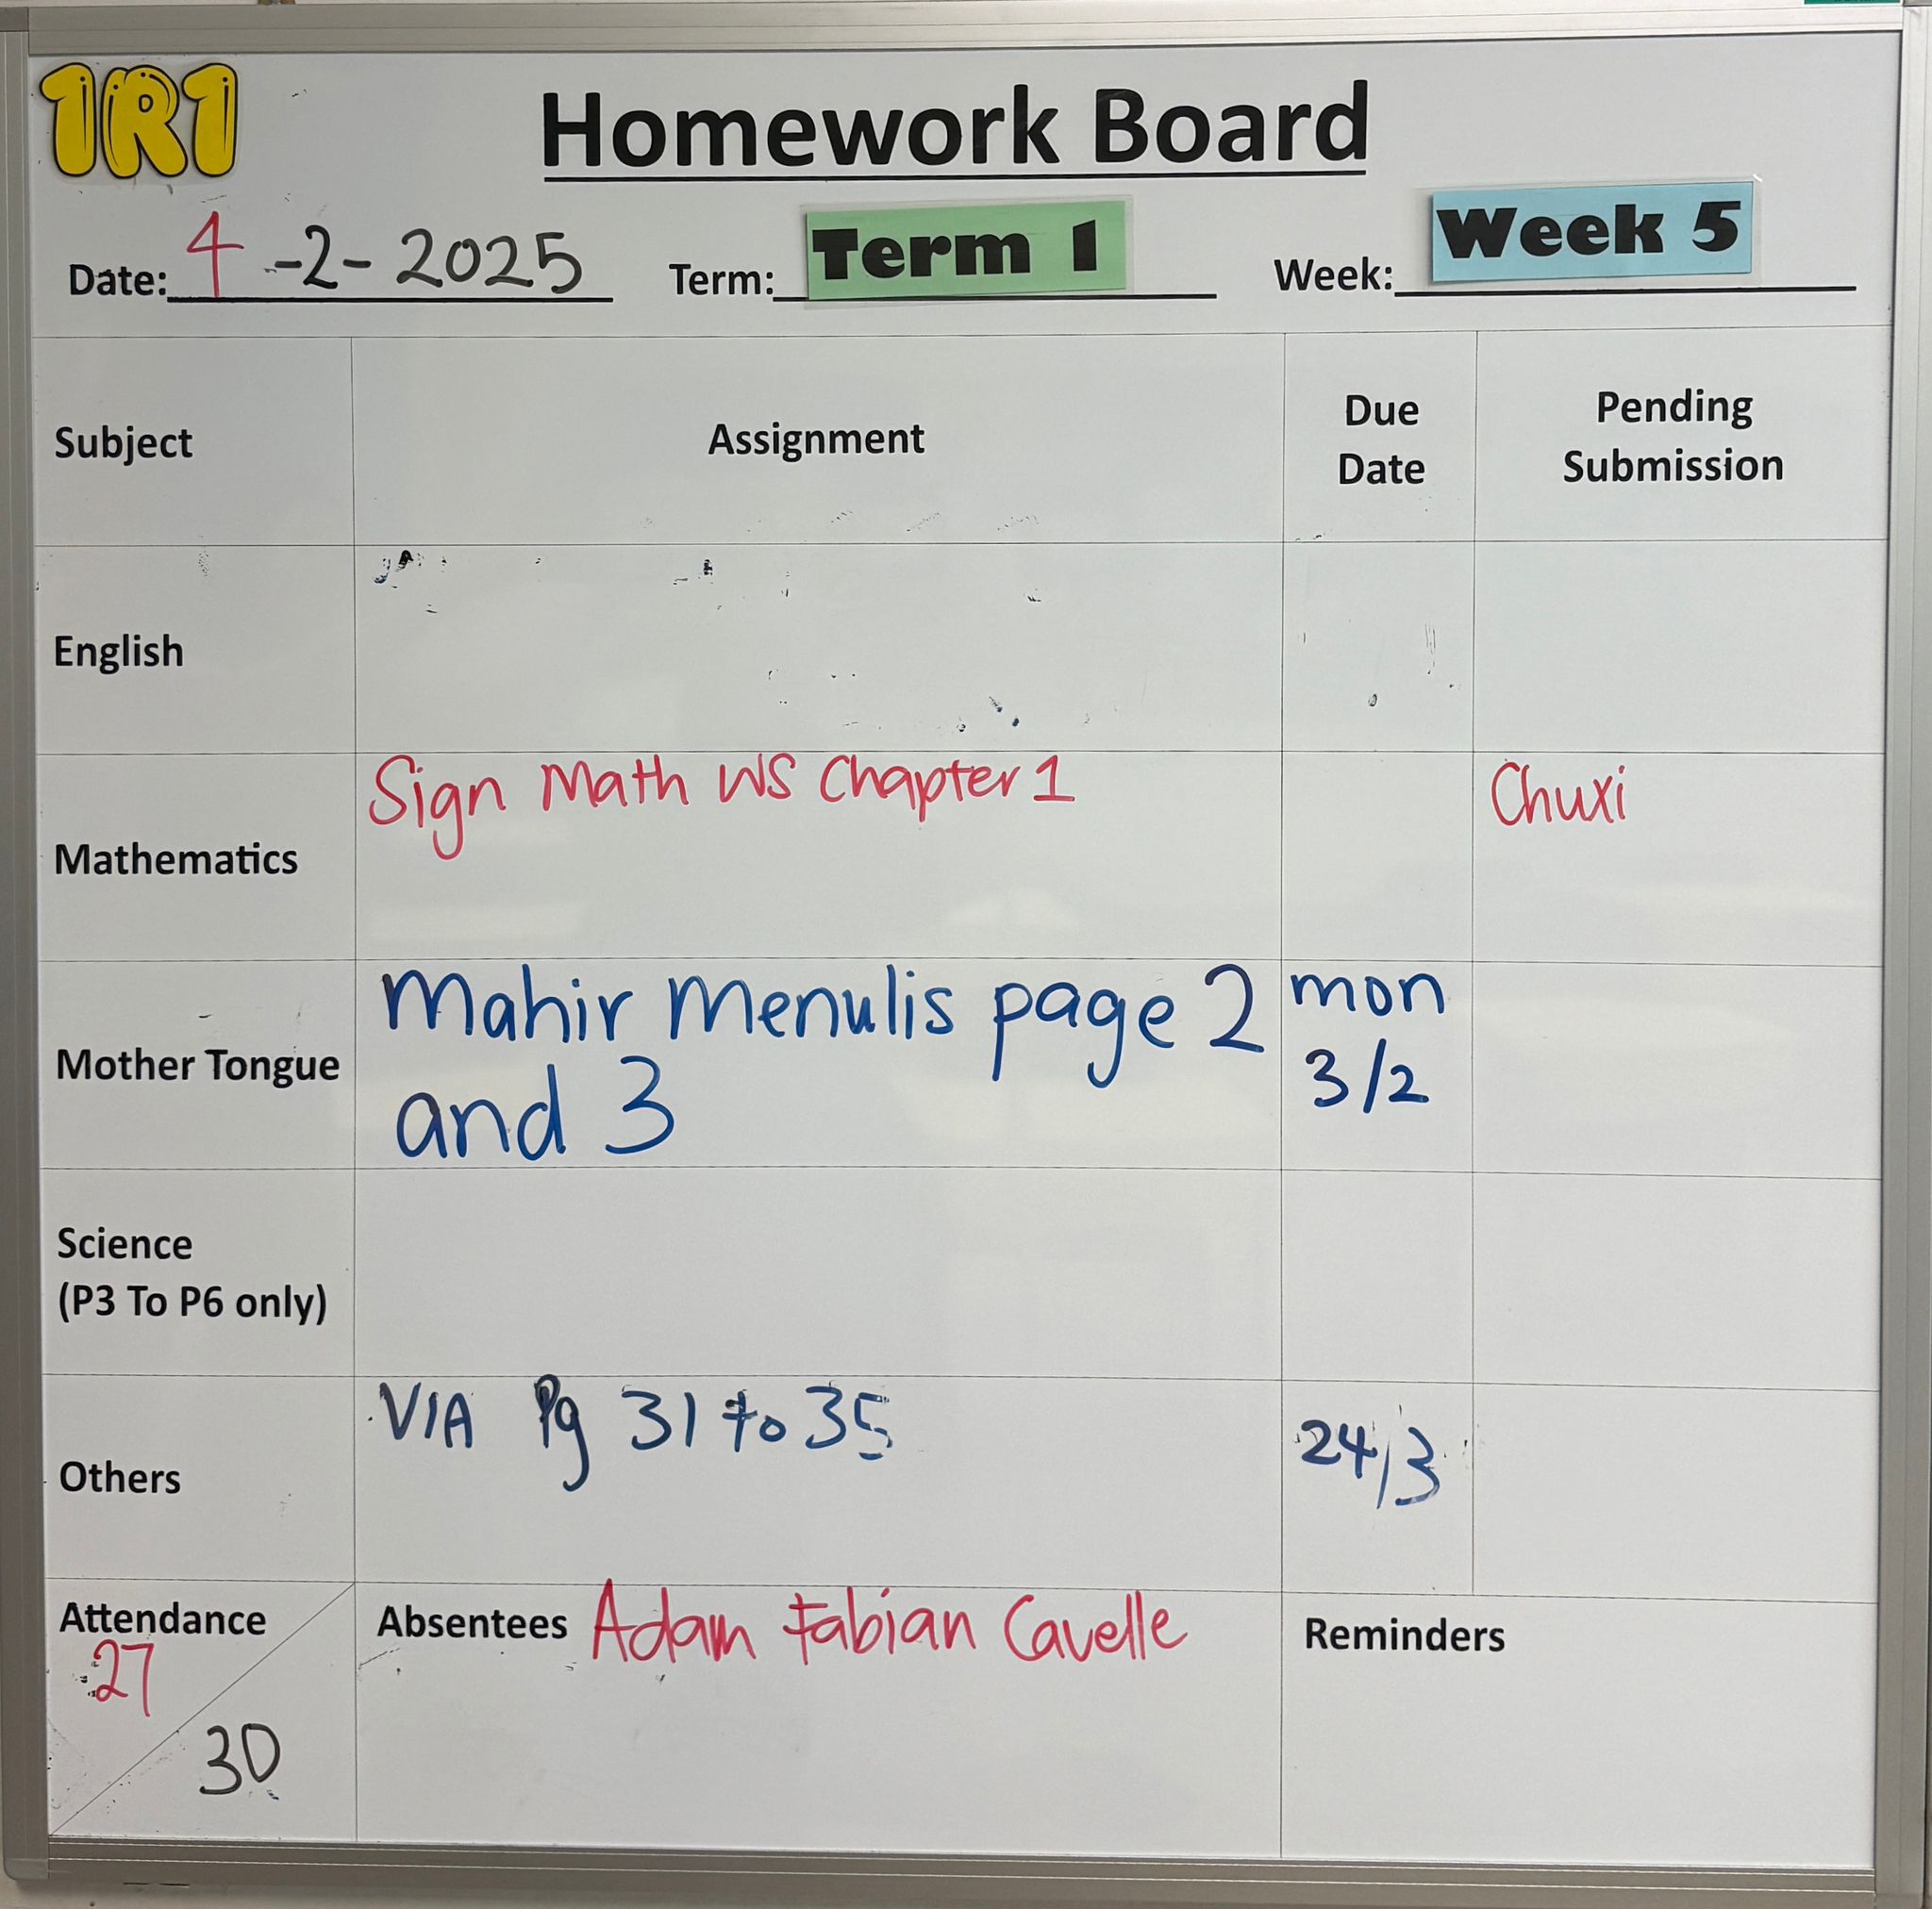 1R1
Homework Board
Date: 4-2-2025 Term: Term 1 Week: Week 5
Subject Assignment Due Date Pending Submission
English
Mathematics Sign Math WS Chapter 1 Chuxi
Mother Tongue Mahir Menulis page 2 and 3 mon 3/2
Science (P3 To P6 only)
Others VIA Pg 31 to 35 24/3
Attendance 27 30 Absentees Adam Fabian Cavelle Reminders